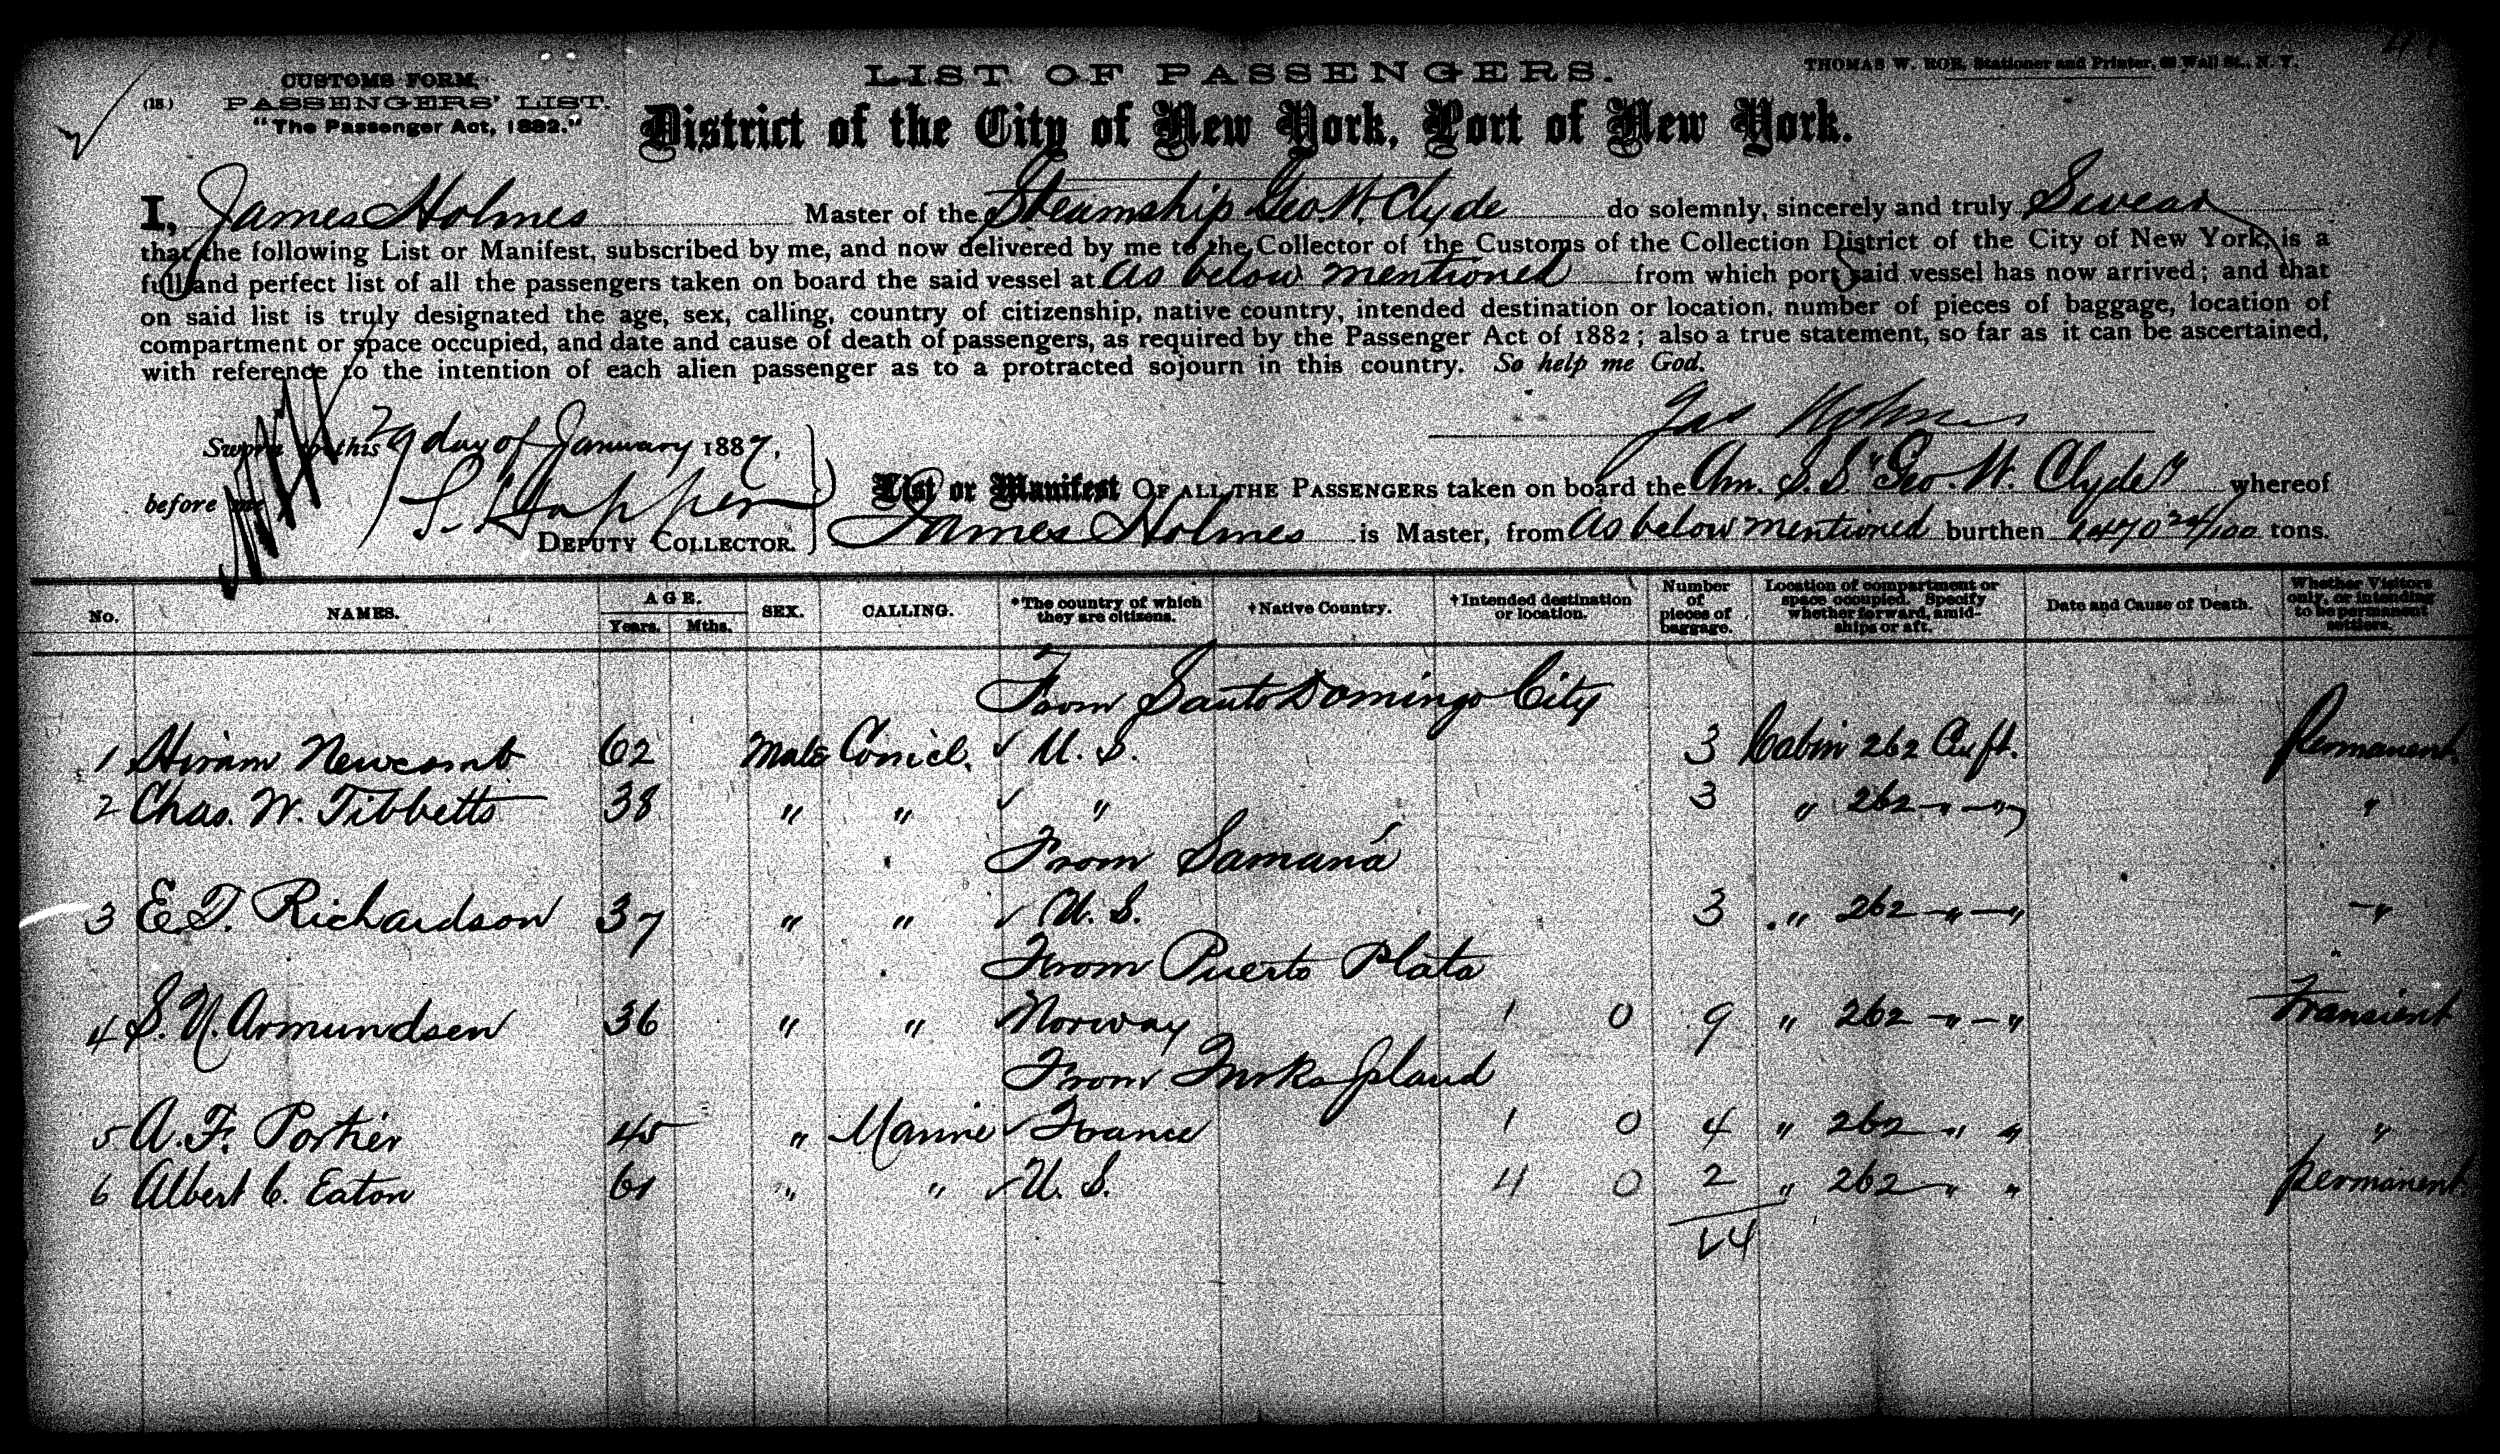 LIST OF PASSENGERS.
THOMAS W. ROE, Stationer and Printer, 69 Wall St., N. Y.
CUSTOMS FORM,
(18.) PASSENGERS' LIST.
"The Passenger Act, 1882."
District of the City of New York, Port of New York.
I, James Holmes Master of the Steamship Geo. W. Clyde do solemnly, sincerely and truly Swear
that the following List or Manifest, subscribed by me, and now delivered by me to the Collector of the Customs of the Collection District of the City of New York, is a
full and perfect list of all the passengers taken on board the said vessel at as below mentioned from which port said vessel has now arrived; and that
on said list is truly designated the age, sex, calling, country of citizenship, native country, intended destination or location, number of pieces of baggage, location of
compartment or space occupied, and date and cause of death of passengers, as required by the Passenger Act of 1882; also a true statement, so far as it can be ascertained,
with reference to the intention of each alien passenger as to a protracted sojourn in this country. So help me God.
Jas Holmes
Sworn to this 29 day of January 1887,
before me
DEPUTY COLLECTOR.
List or Manifest OF ALL THE PASSENGERS taken on board the Am. S. S. "Geo. W. Clyde" whereof
James Holmes is Master, from as below mentioned burthen tons.
No. NAMES. AGE. Years. Mths. SEX. CALLING. *The country of which they are citizens. †Native Country. †Intended destination or location. Number of pieces of baggage. Location of compartment or space occupied. Specify whether forward, amidships or aft. Date and Cause of Death. Whether Visitors only, or intending to be permanent settlers.
From Santo Domingo City
1 Hiram Newcomb 62 Male Comcl. ✓ U. S. 3 Cabin 262 Cu ft. Permanent.
2 Chas. W. Tibbetts 38 " " ✓ " 3 " 262 " " "
From Samaná
3 E. T. Richardson 37 " " ✓ U. S. 3 " 262 " " "
From Puerto Plata
4 S. N. Armundsen 36 " " ✓ Norway 1 0 9 " 262 " " Transient
From Turks Island
5 A. F. Portier 45 " Marine ✓ France 1 0 4 " 262 " " "
6 Albert C. Eaton 61 " " ✓ U. S. 4 0 2 " 262 " " permanent